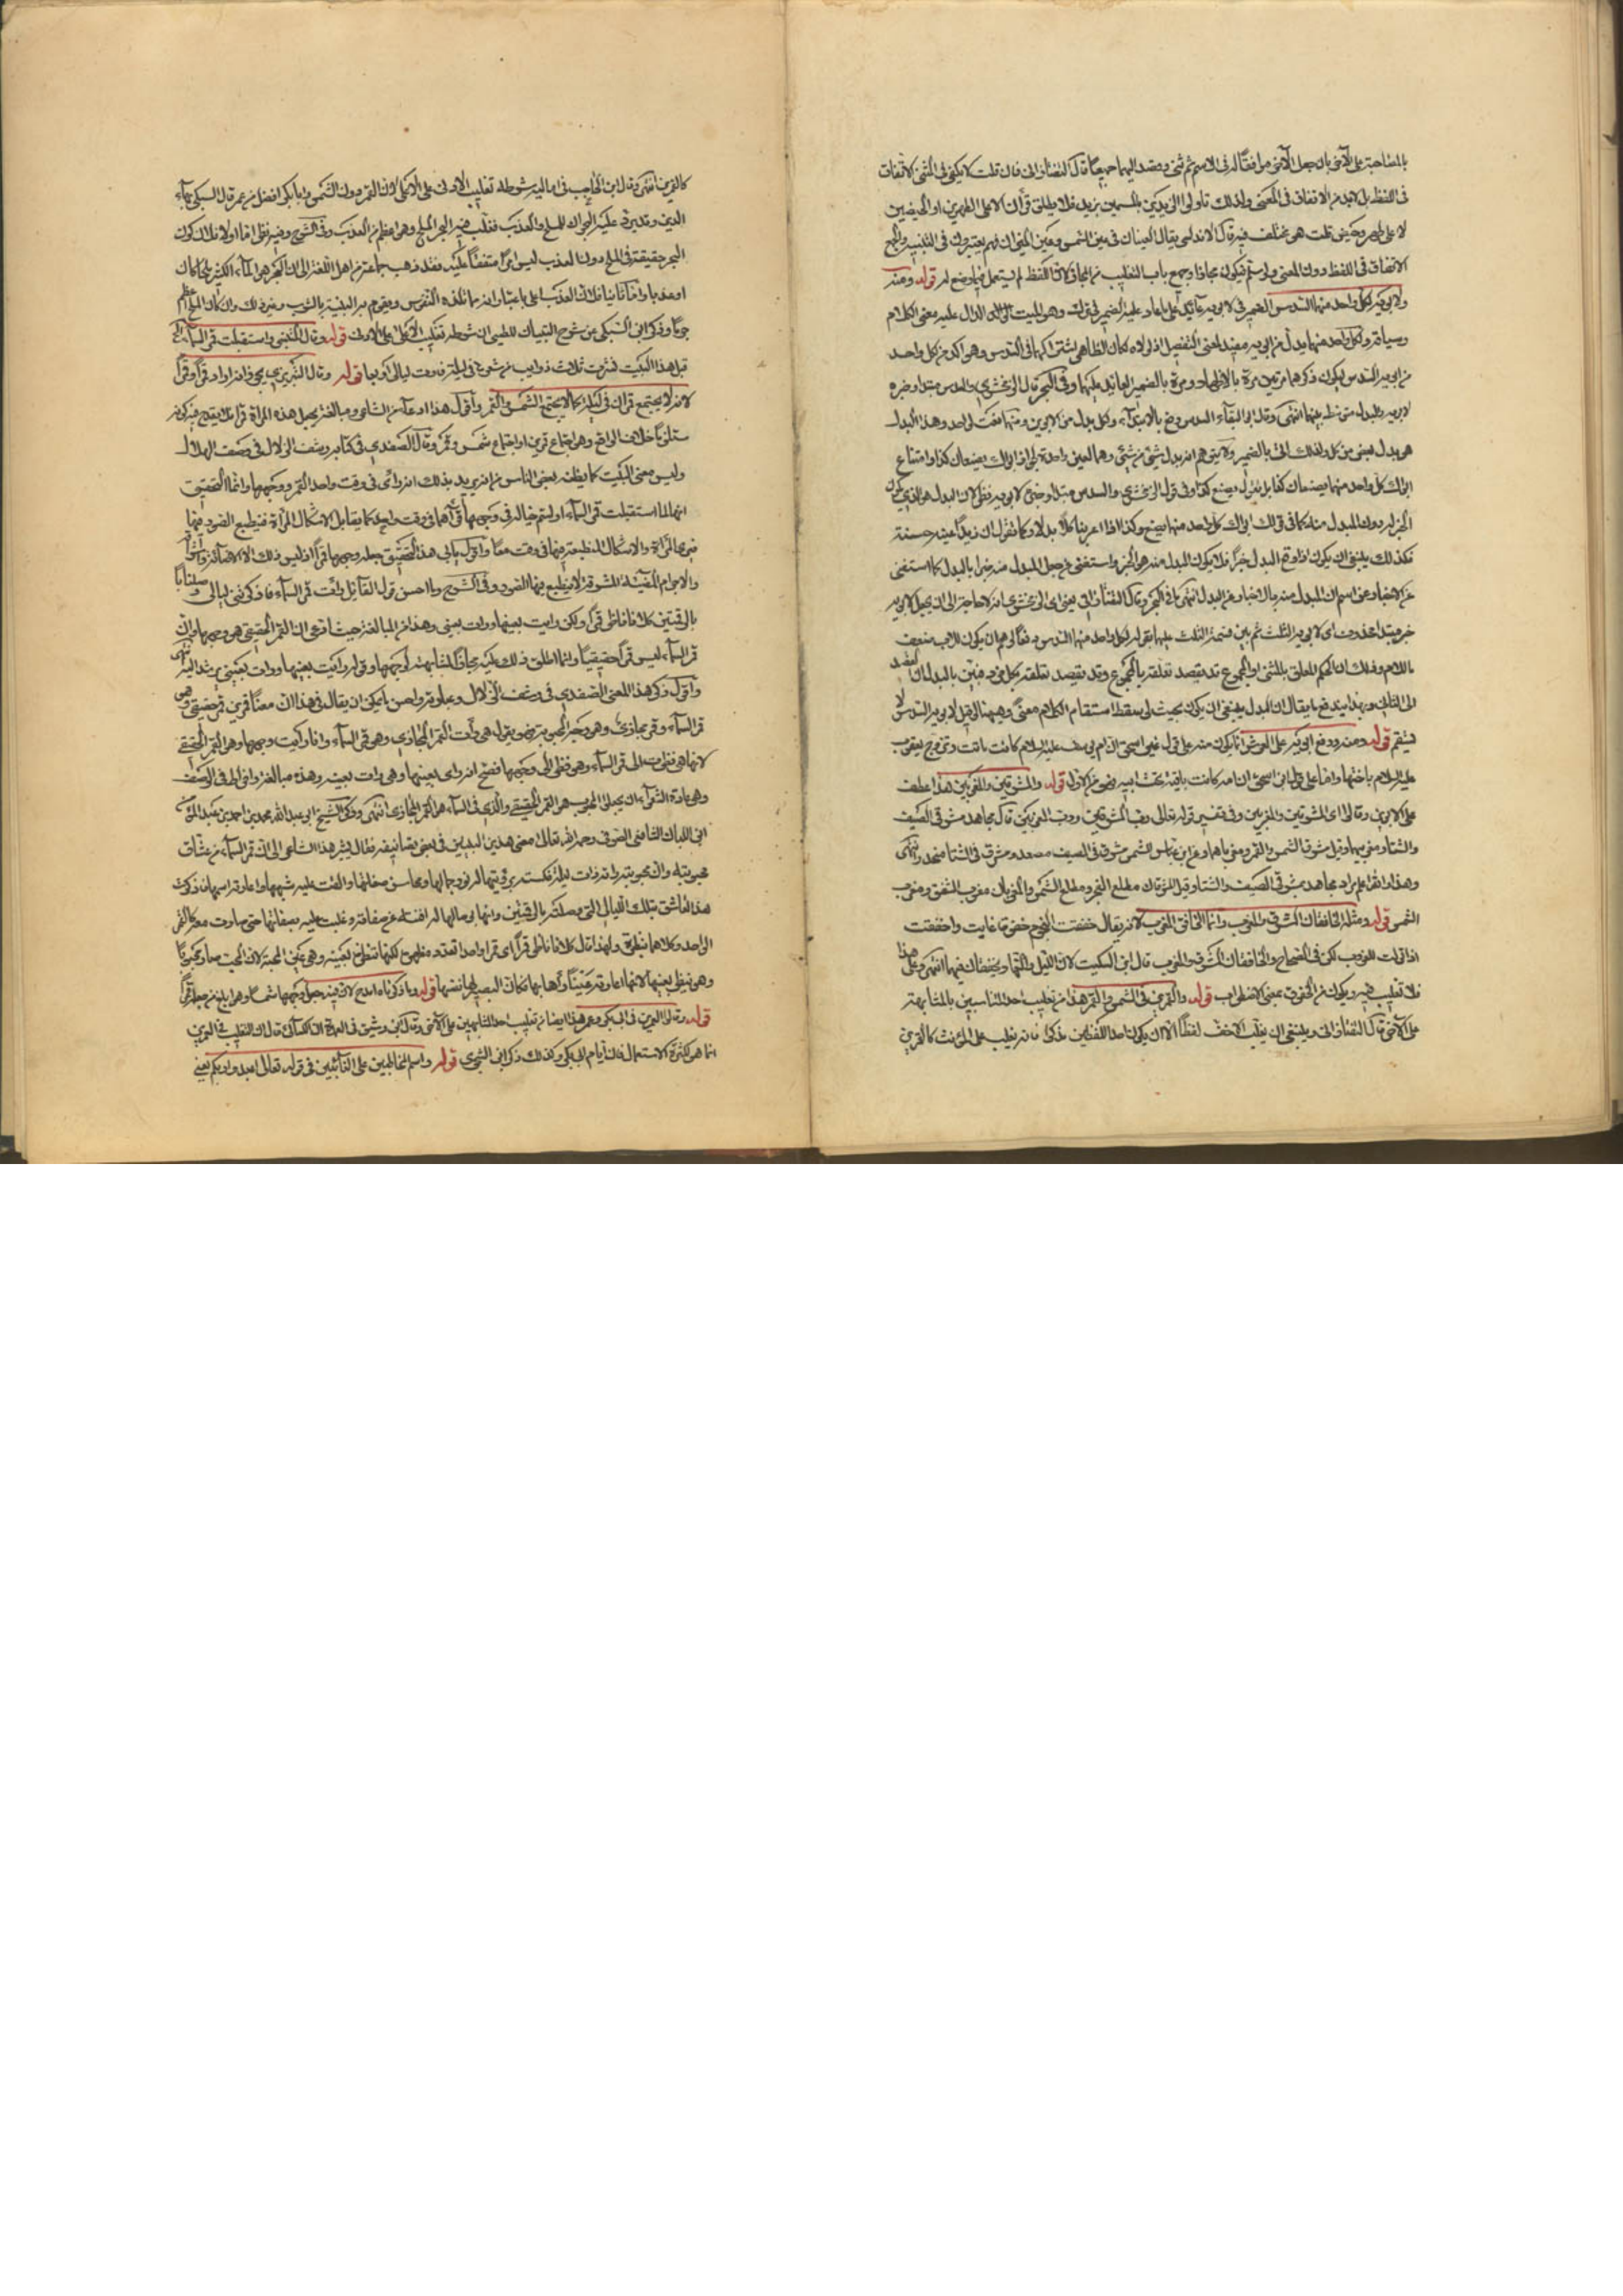 بالمصاحبة على الآخر بان جعل الآخر موافقا له فى الاسم ثم ثنى وقصد اليهما جميعا قال التفتازانى فان قلت لا يكفى فى المثنى الاتفاق
فى اللفظ بل لا بد من الاتفاق فى المعنى ولذلك تاولوا الزيدين بالمسمين بزيد فلا يطلق قرآن الا على الطهرين او الحيضين
لا على طهر وحيض قلت هى مختلف فيه قال الاندلسى يقال العينان فى عين الشمس وعين الميزان فهم يعتبرون فى التثنية والجمع
الاتفاق فى اللفظ دون المعنى ولو سلم فيكون مجازا وجمع باب التغليب من المجاز لان اللفظ لم يستعمل فيما وضع له قوله ومنه
ولابويه لكل واحد منهما السدس الضمير فى لابويه عائد على ما عاد عليه الضمير فى ترك وهو الميت الدال عليه معنى الكلام
وسياقه ولكل واحد منهما بدل من ابويه مفيد لمعنى التفصيل اذ لولاه كان الظاهر اشتراكهما فى السدس وهو اكد من كل واحد
من ابويه السدس لكون ذكرهما مرتين مرة بالاظهار ومرة بالضمير العائد عليهما وفى البحر قال الزمخشرى والسدس مبتدأ وخبره
لابويه والبدل متوسط بينهما انتهى وقال ابو البقاء السدس رفع بالابتداء وكل بدل من الابوين ومنهما نعت لواحد وهذا البدل
هو بدل بعض من كل ولذلك اتى بالضمير ولا يتوهم انه بدل شئ من شئ وهما لعين واحدة لجواز ابواك يصنعان كذا وامتناع
ابواك كل واحد منهما يصنعان كذا بل تقول يصنع كذا وفى قول الزمخشرى والسدس مبتدأ وخبره لابويه نظر لان البدل هو الذى يكون
الخبر له دون المبدل منه كما فى قولك ابواك كل واحد منهما يصنع كذا اذا اعربنا كلا بدلا وكما تقول ان زيدا عينه حسنة
فكذلك ينبغى ان يكون اذا وقع البدل خبرا فلا يكون المبدل منه هو الخبر واستغنى عن جعل المبدل منه خبرا بالبدل كما استغنى
عن الاخبار عن اسم ان المبدل منه بالاخبار عن البدل انتهى ما فى البحر وقال التفتازانى يعنى اى الزمخشرى انه لا حاجة الى ان يجعل لابويه
خبر مبتدا محذوف اى لابويه الثلث ثم بين قسمة الثلث عليهما بقوله لكل واحد منهما السدس
الى الثلث وبهذا يندفع ما يقال ان المبدل ينبغى ان يكون بحيث لو سقط استقام الكلام معنى وههنا لو قيل لابويه السدس لا
يستقيم قوله ومنه ورفع ابويه على العرش انما يكون منه على قول غير اسحق ان ام يوسف عليه السلام كانت ماتت وتزوج يعقوب
عليه السلام باختها واما على قول ابن اسحق ان امه كانت باقية تحت ابيه وضى من الاول قوله والمشرقين والمغربين هذا عطف
على الابوين وقالوا اى المشرقين والمغربين وفى تفسير قوله تعالى رب المشرقين ورب المغربين قال مجاهد مشرق الصيف
والشتاء ومغربيهما وقيل مشرقا الشمس والقمر ومغرباهما وعن ابن عباس للشمس مشرق فى الصيف مصعد ومشرق فى الشتاء منحدر انتهى
وهذا موافق لما يراد مجاهد بمشرقى الصيف والشتاء وقيل المشرقان مطلع الفجر ومطلع الشمس والمغربان مغرب الشفق ومغرب
الشمس قوله ومثله الخافقان المشرق والمغرب وانما الخافق المغرب لانه يقال خفقت النجوم خفوقا غابت واخفقت
اذا تولت للغروب لكن فى الصحاح والخافقان المشرق والمغرب قال ابن السكيت لان الليل والنهار يخفقان فيهما انتهى وعلى هذا
فلا تغليب فيه ويكون من الخفوق بمعنى الاضطراب قوله والقمرين فى الشمس والقمر هذا من تغليب احد المتناسبين بالمشابهة
على الآخر قال التفتازانى وينبغى ان يغلب الاخف لفظا الا ان يكون احد اللفظين مذكرا فانه يغلب على المؤنث كالقمرين
كالقمرين انتهى وقال ابن الحاجب فى اماليه شرطه تغليب الادنى على الاعلى لان القمر دون الشمس وابا بكر افضل من عمر قال السبكى بهاء
الدين وقد يرد عليه البحران للملح والعذب فغلب فيه البحر الملح وهو اعظم من العذب وفى الشرح وفيه نظر اما اولا فلان كون
البحر حقيقة فى الملح دون العذب ليس امرا متفقا عليه فقد ذهب جماعة من اهل اللغة الى ان البحر هو الماء الكثير ملحا كان
او عذبا واما ثانيا فلان العذب اعلى باعتبار انه مما تلذه النفوس ويقوم به البنية بالشرب وغير ذلك وان كان الملح اعظم
جرما وذكر ابن السبكى عن شرح التبيان للطيبى ان شرطه تغليب الاعلى على الادون قوله وقال المتنبى واستقبلت قمر السماء الخ
قبل هذا البيت نشرت ثلاث ذوايب من شعرها فى ليلة فارت ليالى اربعا قوله وقال التبريزى يجوز انه اراد قمرا وقمرا
لانه لا يجتمع قمران فى ليلة كما لا يجتمع الشمس والقمر واقول هذا ادعاء من الشاعر ومبالغة بجعل هذه المراة قمرا فلا يقدح فيه كونه
مستلزما خلاف الواقع وهو اجتماع قمرين او اجتماع شمس وقمر وقال الصفدى فى كتابه رشف الزلال فى وصف الهلال
وليس معنى البيت كما يظنه بعض الناس من انه يريد بذلك انه راى فى وقت واحد القمر ووجهها وانما التحقيق
انها لما استقبلت قمر السماء ارتسم خياله فى وجهها فرآهما فى وقت واحد كما يقابل الاشكال المرآة فتنطبع الصورة فيها
فيرى المرآة والاشكال المنطبعة فيها فى وقت معا واقول يابى هذا التحقيق جعله وجهها قمرا اذ ليس ذلك الا لاضاءته واشراقه
والاجرام المضيئة المشرقة لا ينطبع فيها الصور وفى الشرح وما احسن قول القائل رأت قمر السماء فاذكرتنى ليالى وصلنا
بالرقمتين كلانا ناظر قمرا ولكن رايت بعينها ورات بعينى وهذا من المبالغة حيث ادعى ان القمر الحقيقى هو وجهها وان
قمر السماء ليس قمرا حقيقيا وانما اطلق ذلك عليه مجازا لمشابهته لوجهها وقوله رايت بعينها ورات بعينى يرشد اليه
واقول ذكر هذا المعنى الصفدى فى رشف الزلال وعبارته واحسن ما يمكن ان يقال فى هذا ان معنا قمرين قمر حقيقى وهو
قمر السماء وقمر مجازى وهو وجه المحبوبة فهو يقول هى رأت القمر المجازى وهو قمر السماء وانا رايت وجهها وهو القمر الحقيقى
لانها هى نظرت الى قمر السماء وهو نظر الى وجهها فصح انه راى بعينها وهى رات بعينه وهذه مبالغة وافراط فى الوصف
وهو عادة الشعراء ان يجعلوا المحبوب هو القمر الحقيقى والذى فى السماء هو القمر المجازى انتهى وذكر الشيخ ابو عبد الله محمد بن احمد بن عبد المؤمن
ابن اللبان الشافعى الصوفى رحمه الله تعالى معنى هذين البيتين فى بعض تصانيفه فقال يشير هذا الشاعر الى ان قمر السماء من عشاق
محبوبته وان محبوبته راته ذات ليلة فكسته برؤيتها له نور جمالها ومحاسن صفاتها والقت عليه شبهها واعارته اسمها فذكرت
هذا العاشق بتلك الليالى التى وصلته بالرقمتين وانها بوصالها له افنته عن صفاته وغلبت عليه بصفاتها حتى صارت معه كالقمر
الواحد وكلاهما ينظره ولهذا قال كلانا ناظر قمرا اى قمرا واحدا تعدد مظهره لكنها تنظره بعينه وهى عين المحبة لان المحب صار محبوبا
وهو ينظر بعينها لانها اعارته عينا رآها بها فكان البصير لها نفسها قوله وما ذكرناه امدح لانه فيه جعل وجهها شمسا وهو ابلغ من جعله قمرا
قوله وقالوا العمرين فى ابى بكر وعمر هذا ايضا من تغليب احد المتشابهين على الآخر وقال ابن رشيق فى العمدة ان الكسائى قال ان التغليب فى العمرين
انما هو لكثرة الاستعمال فان ايام ابى بكر وكذلك ذكر ابن الشجرى قوله واسم المخاطبين على الغائبين فى قوله تعالى اعبدوا ربكم يعنى